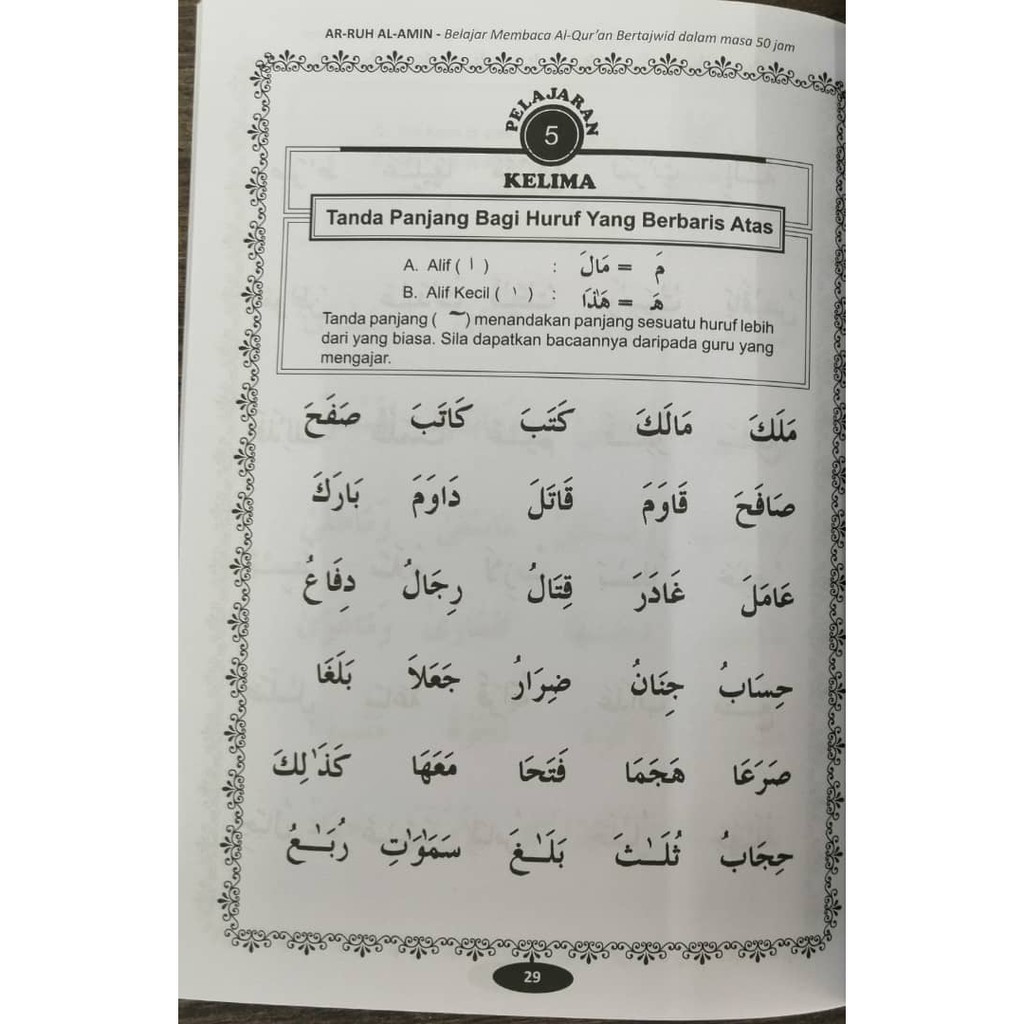 AR-RUH AL-AMIN - Belajar Membaca Al-Qur'an Bertajwid dalam masa 50 jam
PELAJARAN
5
KELIMA
Tanda Panjang Bagi Huruf Yang Berbaris Atas
A. Alif ( ا ) : مَ = مَالَ
B. Alif Kecil ( ٰ ) : هَـ = هَٰذَا
Tanda panjang ( ~ ) menandakan panjang sesuatu huruf lebih
dari yang biasa. Sila dapatkan bacaannya daripada guru yang
mengajar.
مَلَكَ مَالَكَ كَتَبَ كَاتَبَ صَفَحَ
صَافَحَ قَاوَمَ قَاتَلَ دَاوَمَ بَارَكَ
عَامَلَ غَادَرَ قِتَالُ رِجَالُ دِفَاعُ
حِسَابُ جِنَانُ ضِرَارُ جَعَلَا بَلَغَا
صَرَعَا هَجَمَا فَتَحَا مَعَهَا كَذَٰلِكَ
حِجَابُ ثُلَـٰثَ بَلَـٰغَ سَمَٰوَٰتِ رُبَـٰعُ
29